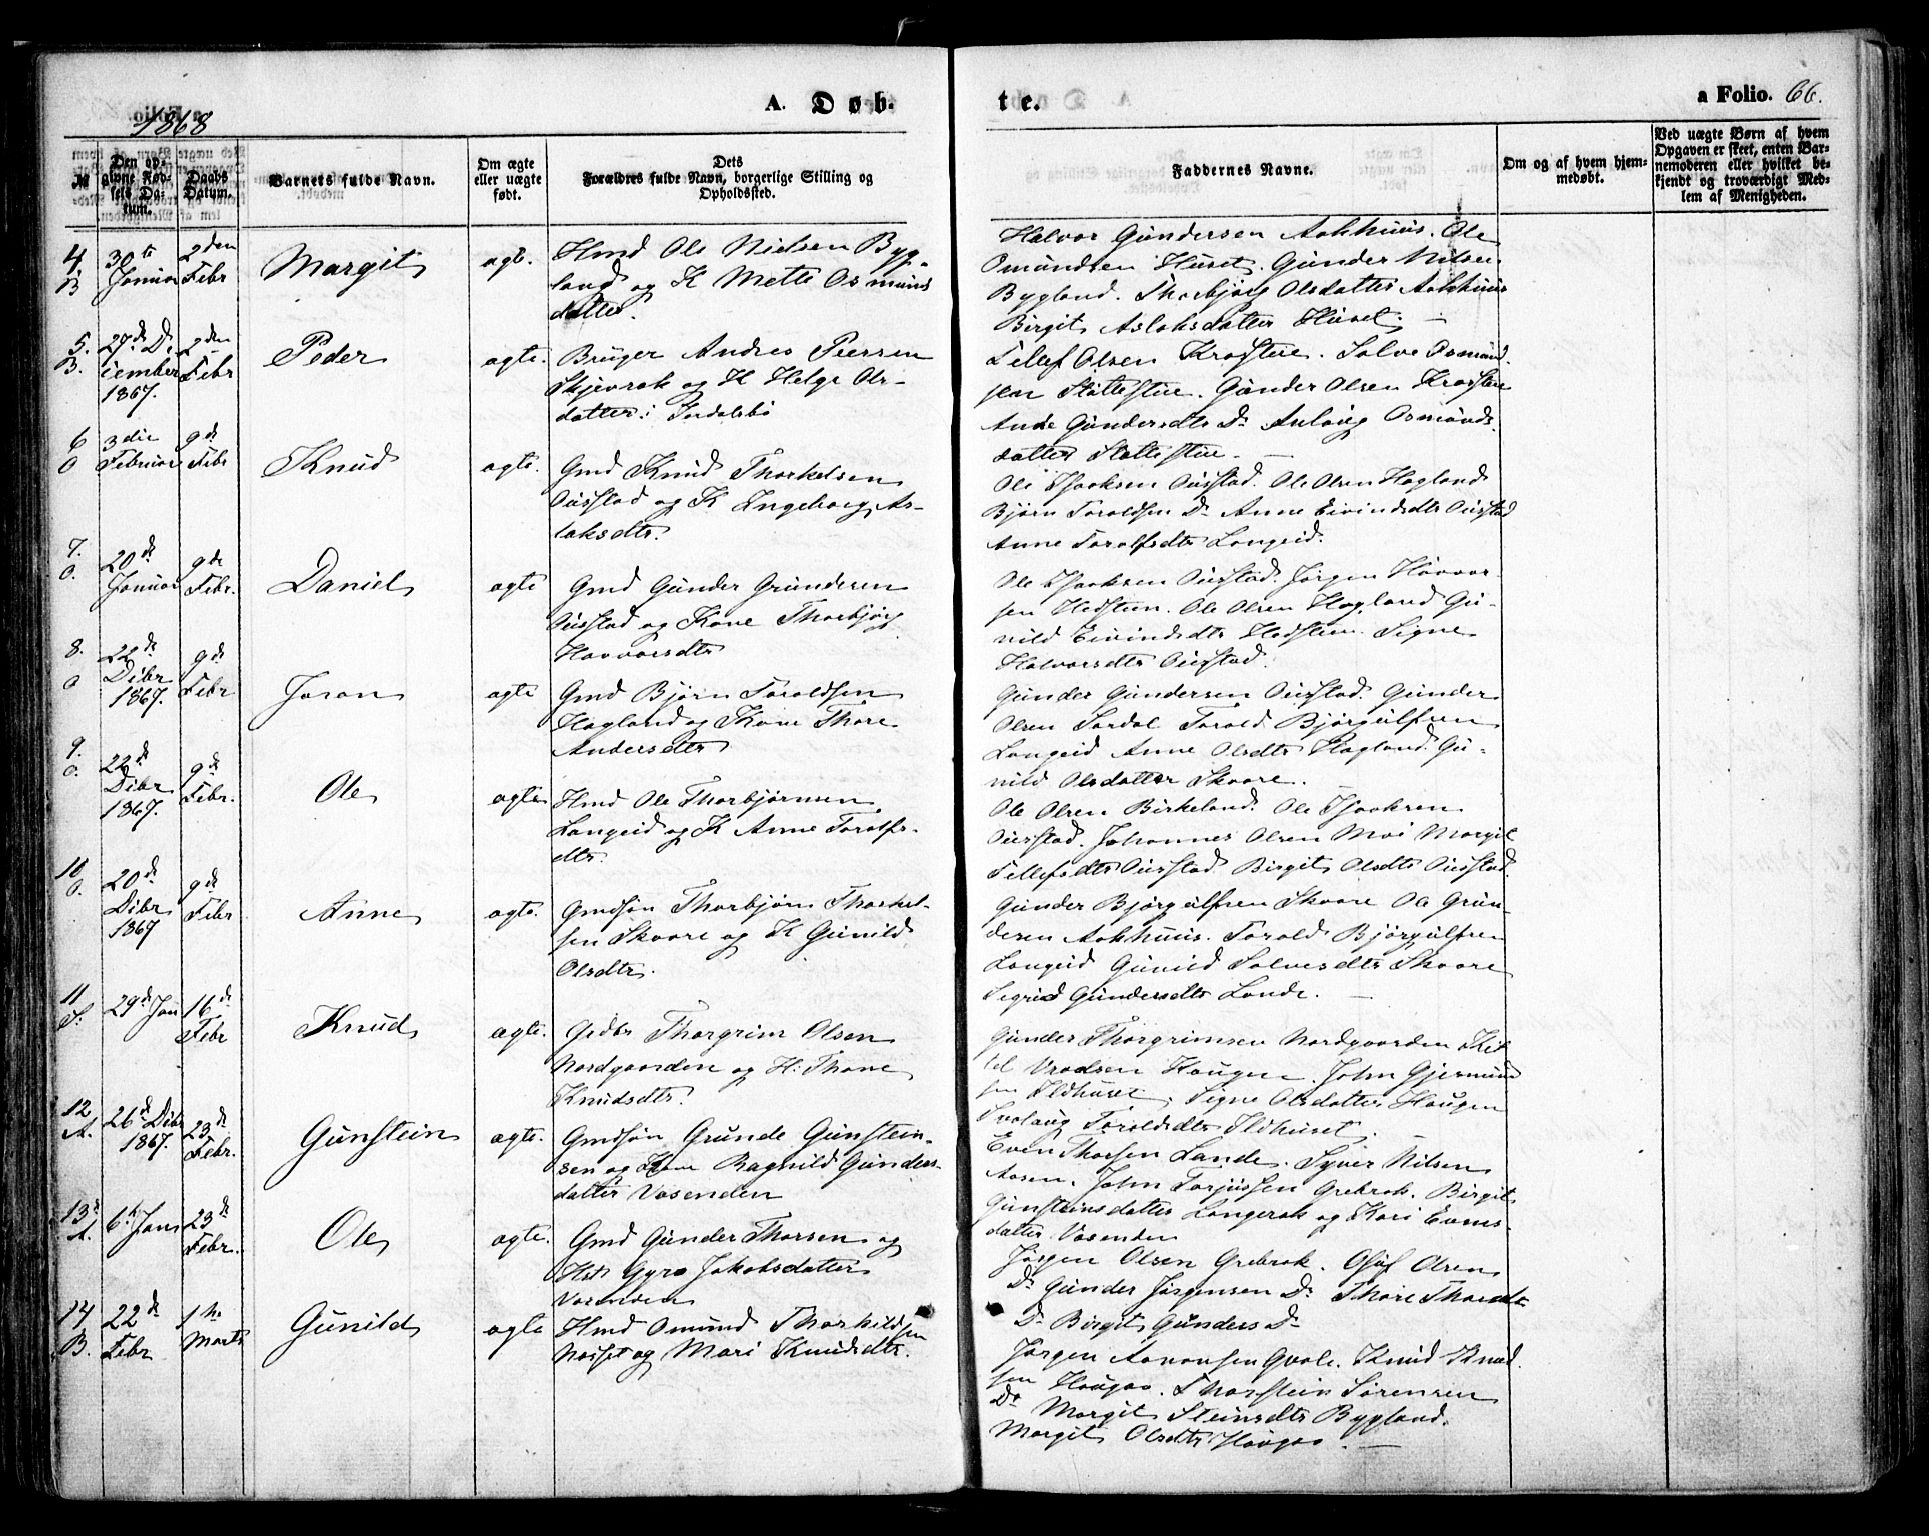 1868
A. Døb-
te.
a Folio. 66.
№
Den op-
givne Fød-
sels Da-
tum.
Daabs
Datum.
Barnets fulde Navn.
Om ægte
eller uægte
født.
Dets
Forældres fulde Navn, borgerlige Stilling og
Opholdssted.
Faddernes Navne.
Om og af hvem hjem-
medøbt.
Ved uægte Børn af hvem
Opgaven er skeet, enten Bar-
nemoderen eller hvilket be-
kjendt og troværdigt Med-
lem af Menigheden.
4
B
30te
Januar
2den
Febr
Margit
ægte.
Hmd Ole Nielsen Byg-
land og K Mette Osmunds
datter.
Halvor Gundersen Aakhuus. Ole
Omundsen Huset. Gunder Nilsen
Bygland. Thorbjørg Olsdatter Aakhuus
Birgit Aslaksdatter Huset. —
5.
B.
27de De-
cember
1867.
2den
Febr
Peder
ægte.
Bruger Andres Peersen
Skjevrak og K Helge Ols-
datter i Jordalsbø
Tellef Olsen Krostue. Salve Osmund-
sen Støttestue. Gunder Olsen Krostue
Ande Gundersdtr Do Anlaug Osmunds-
datter Støttestue. —
6
O
3die
Februar
9de
Febr
Knud
ægte.
Gmd Knud Thorkelsen
Ousstad og K Ingeborg As-
laksdtr.
Ole Isaksen Ousstad. Ole Olsen Hagland
Bjørn Toroldsen Do Anne Eivindsdtr Ousstad
Anne Torolfsdtr Langeid.
7.
O.
20de
Januar
9de
Febr.
Daniel
ægte
Gmd Gunder Gundersen
Ousstad og Kone Thorbjørg
Havvorsdtr
Ole Isaksen Ousstad. Jørgen Havvor-
sen Hedsteen. Ole Olsen Hagland Gu-
nild Eivindsdtr Hedsteen. Signe
Halvorsdtr Ousstad.
8.
O
22de
Decbr
1867.
9de
Febr
Joran
ægte
Gmd Bjørn Toroldsen
Hagland og Kone Thore
Andersdtr
Gunder Gundersen Ousstad. Gunder
Olsen Sordal. Torold Bjørgulfsen
Langeid Anne Olsdtr Hagland Gu-
nild Olsdatter Skaare.
9.
O.
22de
Decbr
1867.
9de
Febr.
Ole
ægte
Hmd Ole Thorbjørnsen
Langeid og K Anne Torolfs-
dtr.
Ole Olsen Birkeland. Ole Isaksen
Ousstad. Johannes Olsen Moi Margit
Tellefsdtr Ousstad Birgit Olsdtr Ousstad.
10
O.
20de
Decbr
1867
9de
Febr
Anne
ægte.
Gmdsøn Thorbjørn Thorkel-
sen Skaare og K Gunild
Olsdtr.
Gunder Bjørgulfsen Skaare Ole Gun-
dersen Aakhuus. Torold Bjørgulfsen
Langeid Gunild Salvesdtr Skaare
Sigrid Gundersdtr Lande. —
11
S.
29de Jan
16de
Febr
Knud
ægte.
Gdbr Thorgrim Olsen
Nordgaarden og H: Thone
Knudsdtr.
Gunder Thorgrimsen Nordgaarden Kit-
tel Vradsen Haugen. John Gjermund
sen Ildhuset. Signe Olsdatter Haugen
Svalaug Toroldsdtr Ildhuset.
12
A.
26de Decbr
1867.
23de
Febr.
Gunstein
ægte.
Gmdsøn Grunde Gunstein-
sen og Kone Ragnild Gunders-
datter Vasenden
Even Thorsen Lande. Syver Nilsen
Aasen. John Torjussen Grebrok. Birgit
Gunsteinsdatter Langerak og Kari Evens-
datter Vasenden
13de
A.
6te Jan
23de
Febr.
Ole
ægte.
Gmd Gunder Thorsen og
Hst Gyro Jakobsdatter
Vasenden
Jørgen Olsen Grebrok. Oluf Olsen
Do Gunder Jørgensen Do Thore Thorsdtr
Do Birgit Gunders Do
14
B.
22de
Febr
1ste
Marts
Gunild
ægte
Hmd Omund Thorkildsen
Neset og Mari Knudsdtr.
Jørgen Aanonsen Qvale. Knud Knud-
sen Haugaa. Thorstein Sørensen
Do Margit Steinsdtr Bygland.
Margit Olsdtr Haugaa. —